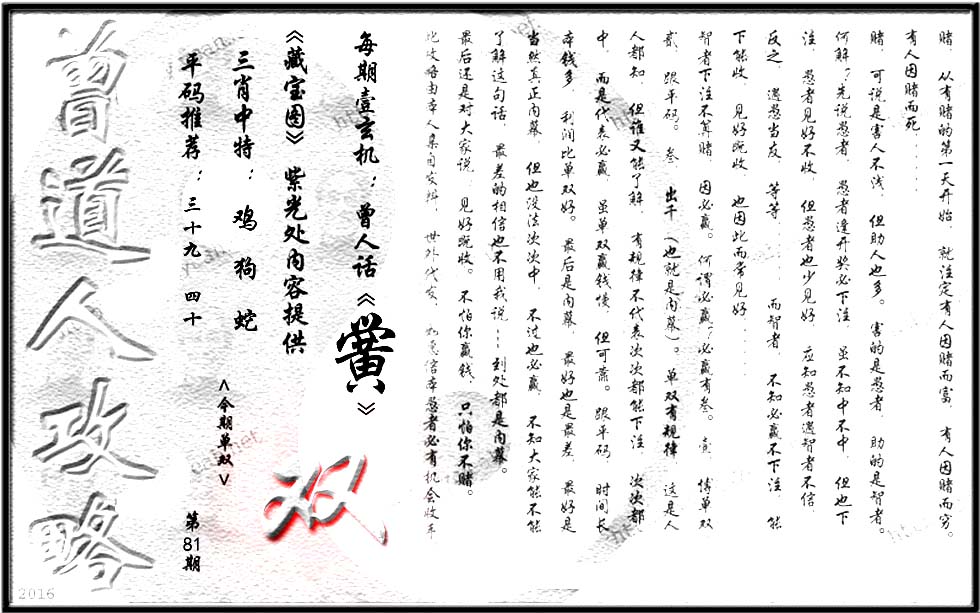 赌，从有赌的第一天开始，就注定有人因赌而富，有人因赌而穷。
有人因赌而死......
赌，可说是害人不浅，但助人也多。害的是愚者，助的是智者。
何解？先说愚者，愚者逢开奖必下注，虽不知中不中，但也下
注，愚者见好不收，但愚者也少见好，应知愚者遇智者不信，
反之，遇愚当友，等等......而智者，不知必赢不下注，能
下能收，见好既收，也因此而常见好......
智者下注不算赌，因必赢。何谓必赢？必赢有叁。壹，博单双
贰，跟平码。叁，出千（也就是内幕）。单双有规律，这是人
人都知，但谁又能了解，有规律不代表次次都能下注，次次都
中，而是代表必赢，虽单双赢钱慢，但可靠。跟平码，时间长
本钱多，利润比单双好。最后是内幕，最好也是最差，最好是
当然真正内幕，但也没法次次中，不过也必赢，不知大家能不能
了解这句话，最差的相信也不用我说......到处都是内幕。
最后还是对大家说，见好既收。不怕你赢钱，只怕你不赌。
此攻略由本人亲自发料，世外代发，如愚信本愚者必有机会收年
每期壹玄机：曾人话《黉》
《藏宝图》紫光处内容提供
三肖中特：鸡 狗 蛇
平码推荐：三十九 四十
<今期单双>
双
第81期
曾道人攻略
2016